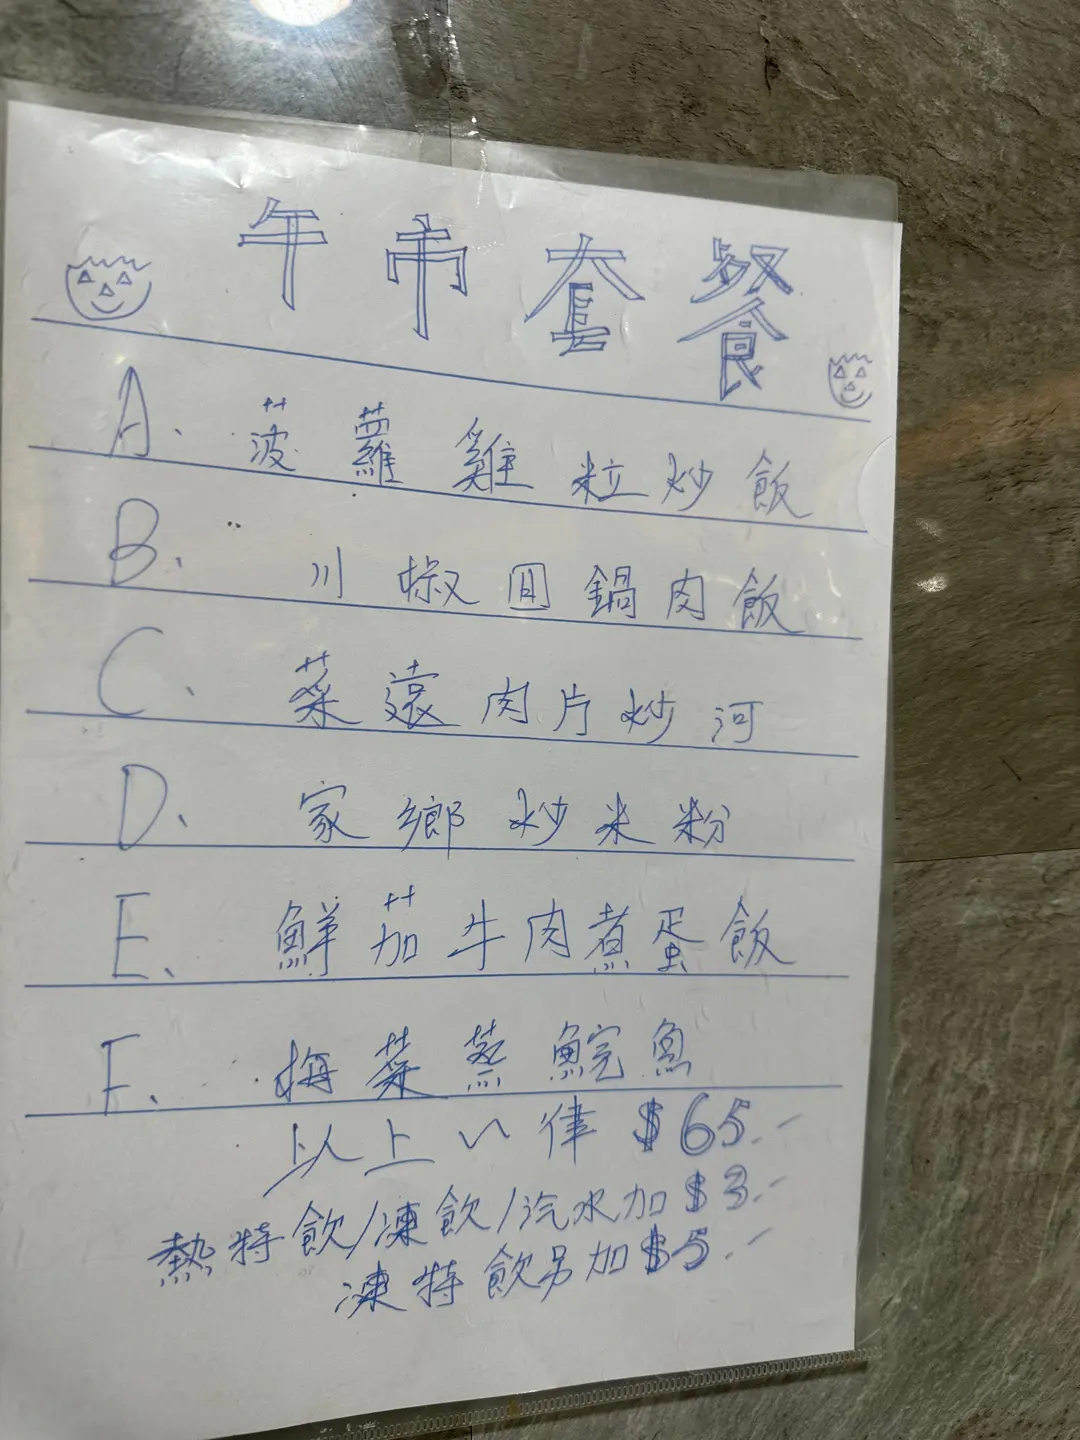 午市套餐
A、菠蘿雞粒炒飯
B、川椒回鍋肉飯
C、菜遠肉片炒河
D、家鄉炒米粉
E、鮮茄牛肉煮蛋飯
F、梅菜蒸鯇魚
以上一律$65.-
熱特飲/凍飲/汽水加$3.-
凍特飲另加$5.-